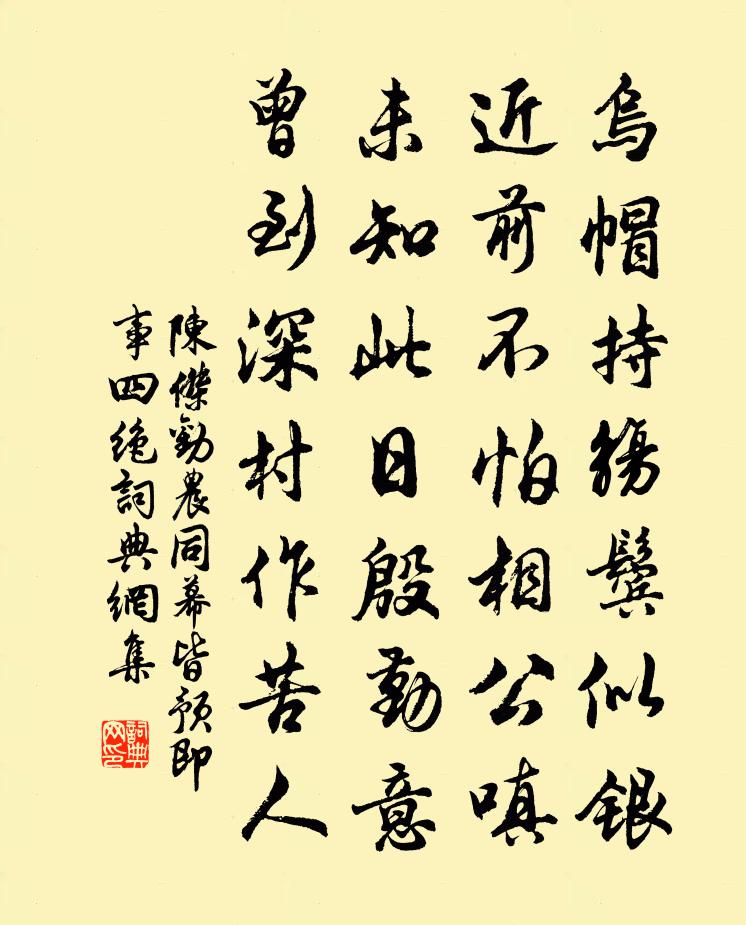 烏帽持觴鬢似銀
近前不怕相公嗔
未知此日殷勤意
曾到深村作苦人
陳傑勸農同幕皆預即
事四絶詞典網集
詞典网印